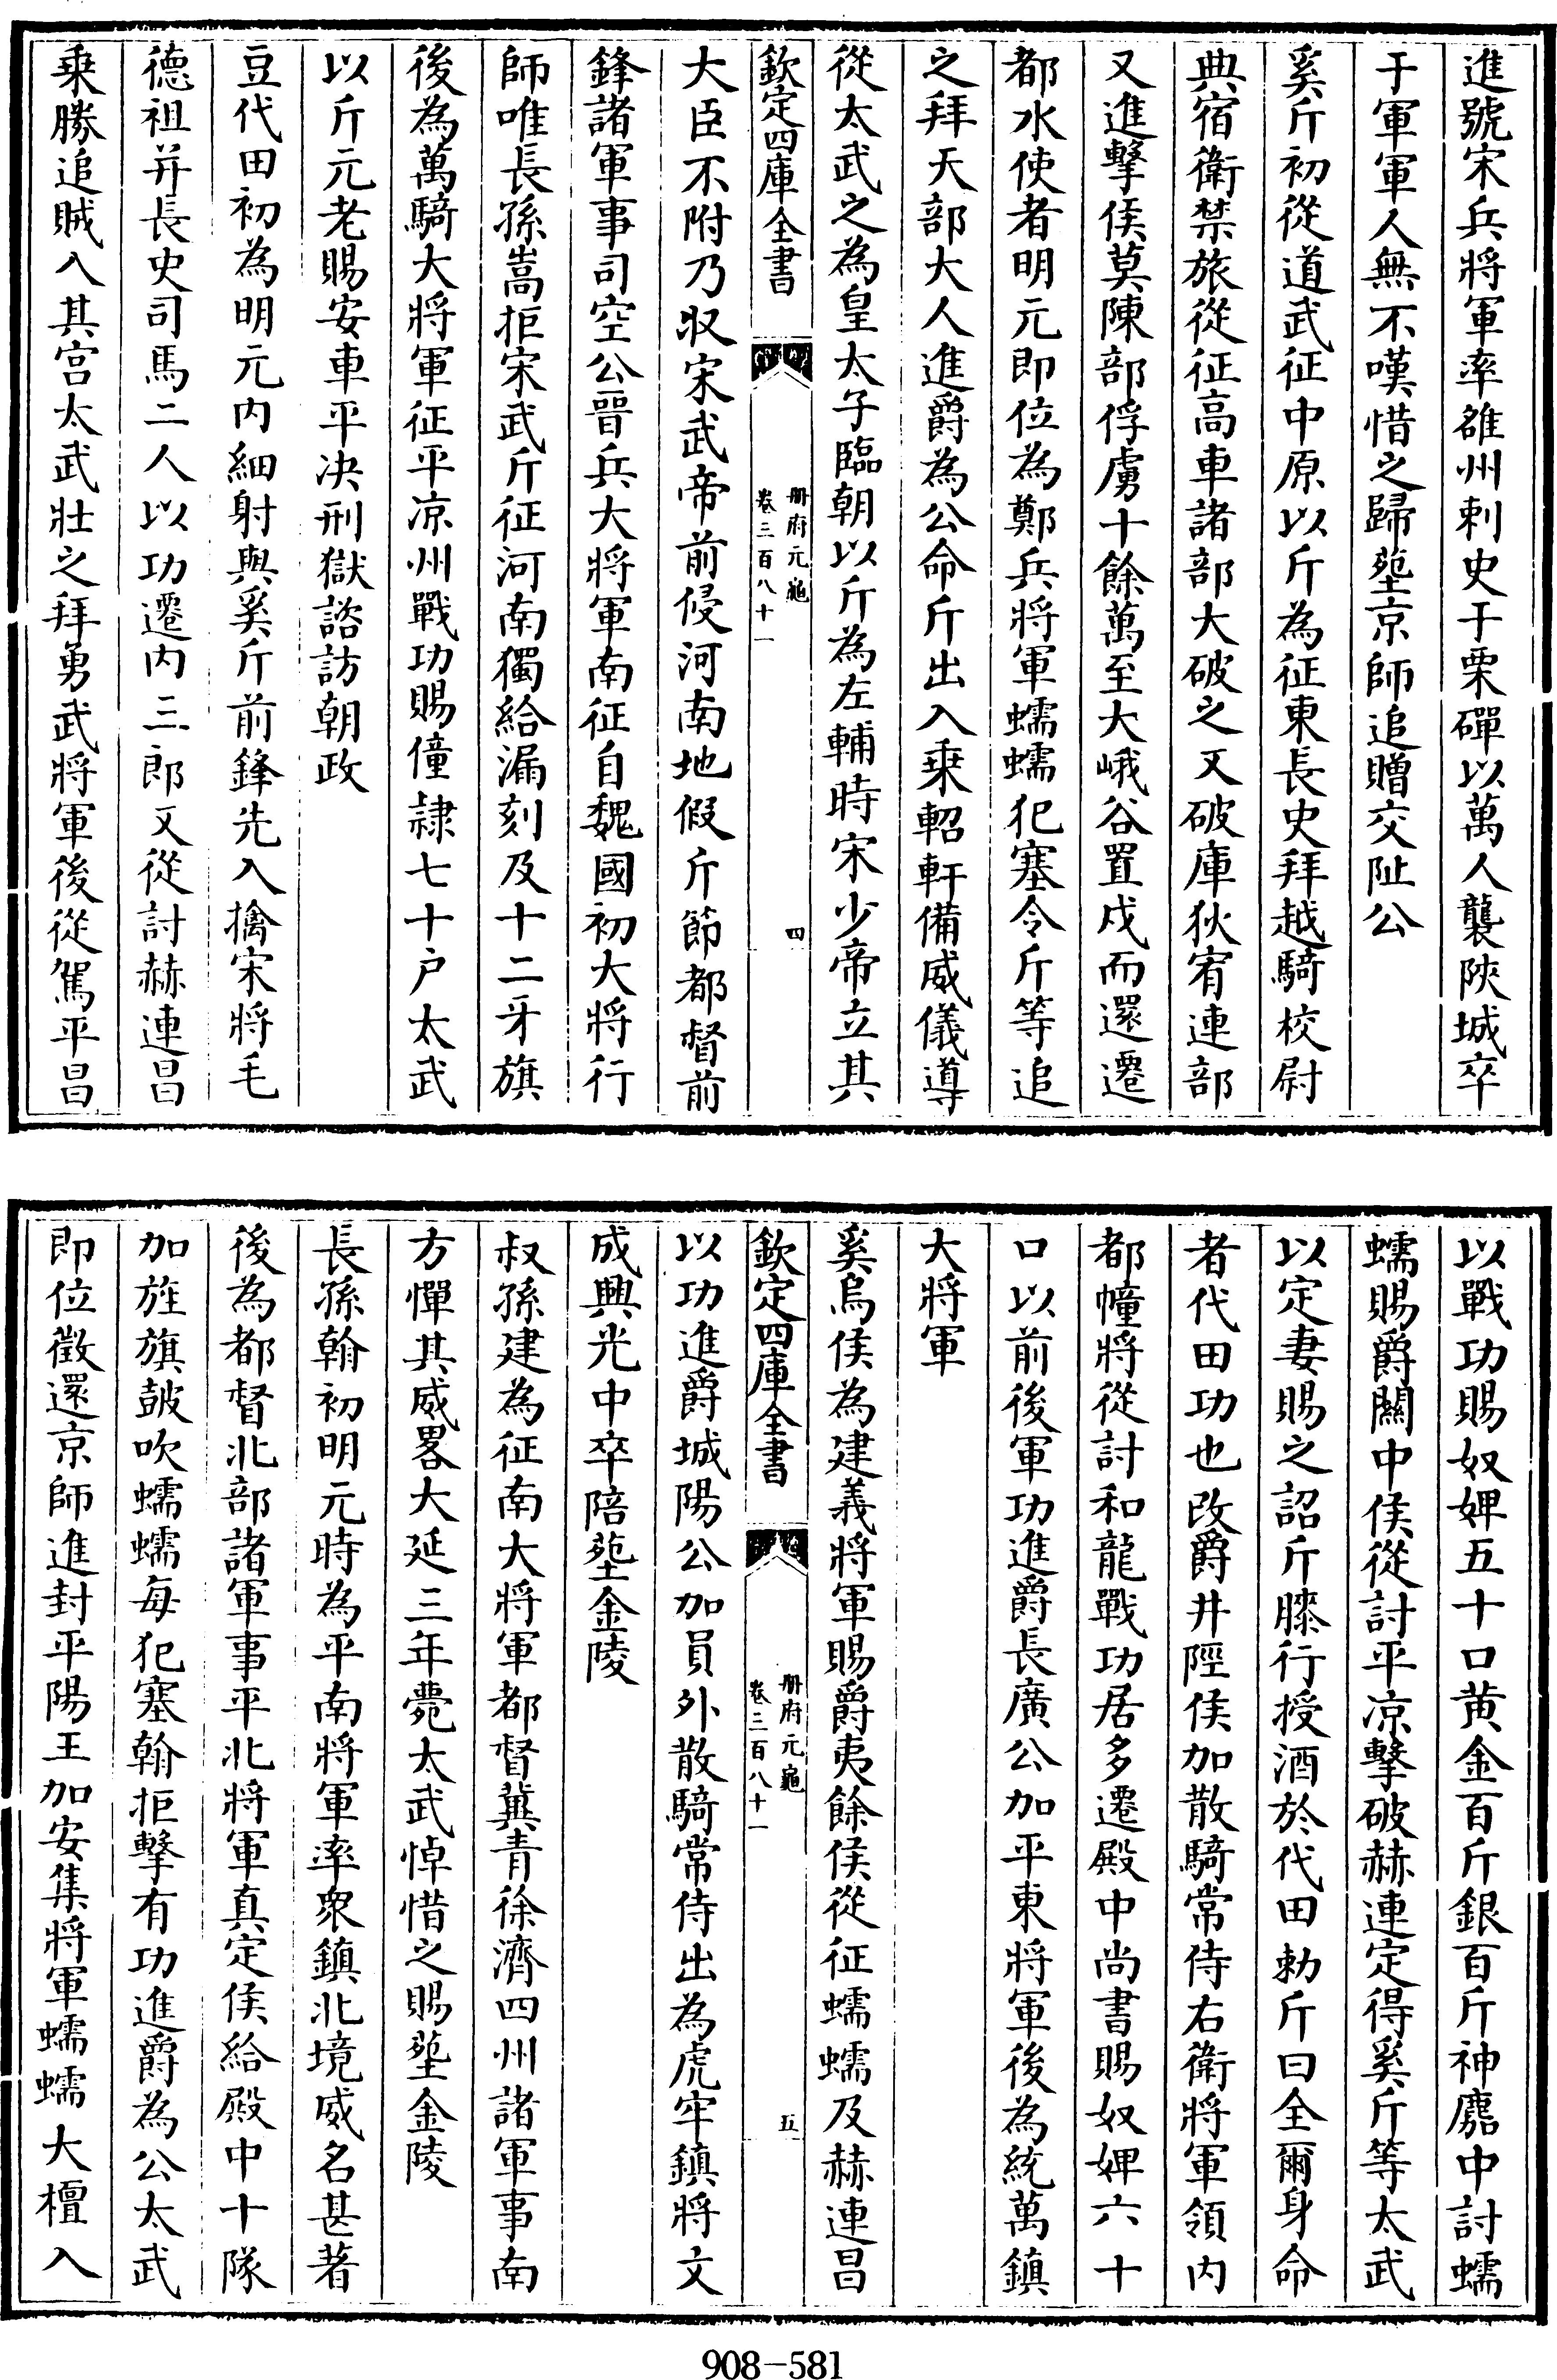 進號宋兵將軍率雒州刺史于栗磾以萬人襲陜城卒
于軍軍人無不嘆惜之歸塟京師追贈交阯公
奚斤初從道武征中原以斤為征東長史拜越騎校尉
典宿衛禁旅從征高車諸部大破之又破庫狄宥連部
又進擊侯莫陳部俘虜十餘萬至大峨谷置戍而還遷
都水使者明元即位為鄭兵將軍蠕蠕犯塞令斤等追
之拜天部大人進爵為公命斤出入乗軺軒備威儀導
從太武之為皇太子臨朝以斤為左輔時宋少帝立其
欽定四庫全書
册府元龜
卷三百八十一
四
大臣不附乃収宋武帝前侵河南地假斤節都督前
鋒諸軍事司空公晉兵大將軍南征自魏國初大將行
師唯長孫嵩拒宋武斤征河南獨給漏刻及十二牙旗
後為萬騎大將軍征平凉州戰功賜僮隷七十户太武
以斤元老賜安車平决刑獄諮訪朝政
豆代田初為明元内細射與奚斤前鋒先入擒宋將毛
德祖并長史司馬二人以功遷内三郎又從討赫連昌
乗勝追賊入其宫太武壯之拜勇武將軍後從駕平昌
以戰功賜奴婢五十口黄金百斤銀百斤神䴥中討蠕
蠕賜爵關中侯從討平凉擊破赫連定得奚斤等太武
以定妻賜之詔斤膝行授酒於代田勅斤曰全爾身命
者代田功也改爵井陘侯加散騎常侍右衛將軍領内
都幢將從討和龍戰功居多遷殿中尚書賜奴婢六十
口以前後軍功進爵長廣公加平東將軍後為統萬鎮
大將軍
奚烏侯為建義將軍賜爵夷餘侯從征蠕蠕及赫連昌
欽定四庫全書
册府元龜
卷三百八十一
五
以功進爵城陽公加員外散騎常侍出為虎牢鎮將文
成興光中卒陪塟金陵
叔孫建為征南大將軍都督冀青徐濟四州諸軍事南
方憚其威畧大延三年薨太武悼惜之賜塟金陵
長孫翰初明元時為平南將軍率衆鎮北境威名甚著
後為都督北部諸軍事平北將軍真定侯給殿中十隊
加旌旗皷吹蠕蠕每犯塞翰拒擊有功進爵為公太武
即位徵還京師進封平陽王加安集將軍蠕蠕大檀入
908-581